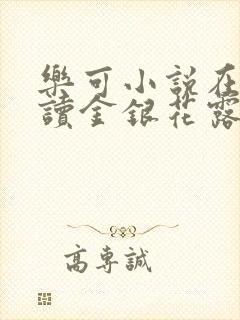 樂可小說在
讀金銀花露
高專誠